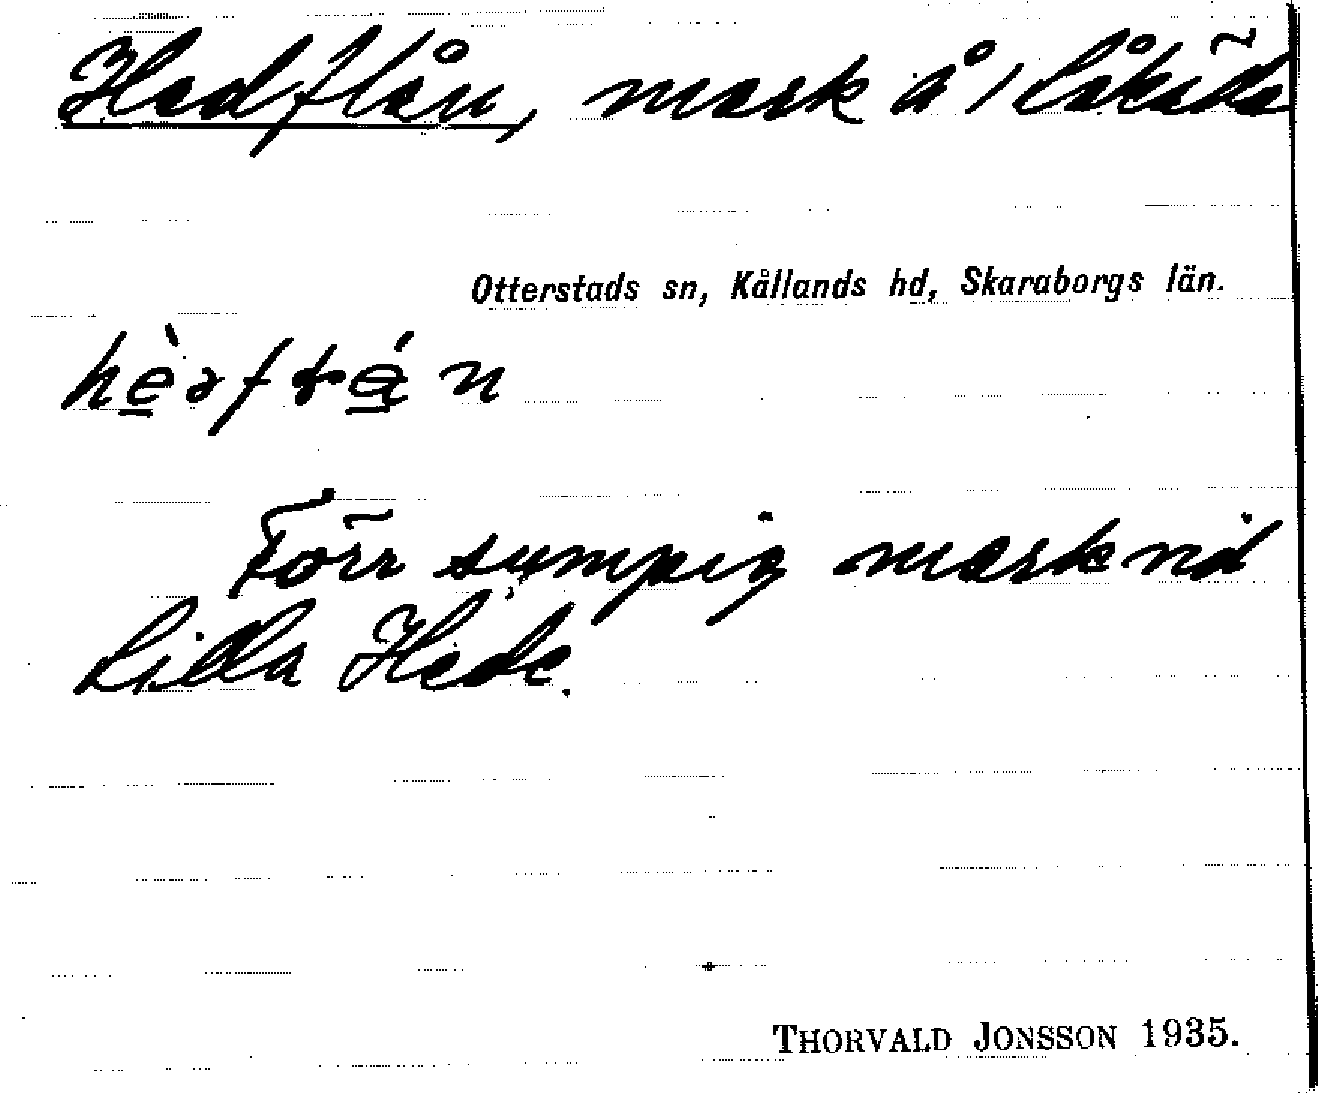 Hedflån, mark å Låkäda
Otterstads sn, Kållands hd, Skaraborgs län.
Förr sumpig mark vid
Lilla Hede.
THORVALD JONSSON 1935.